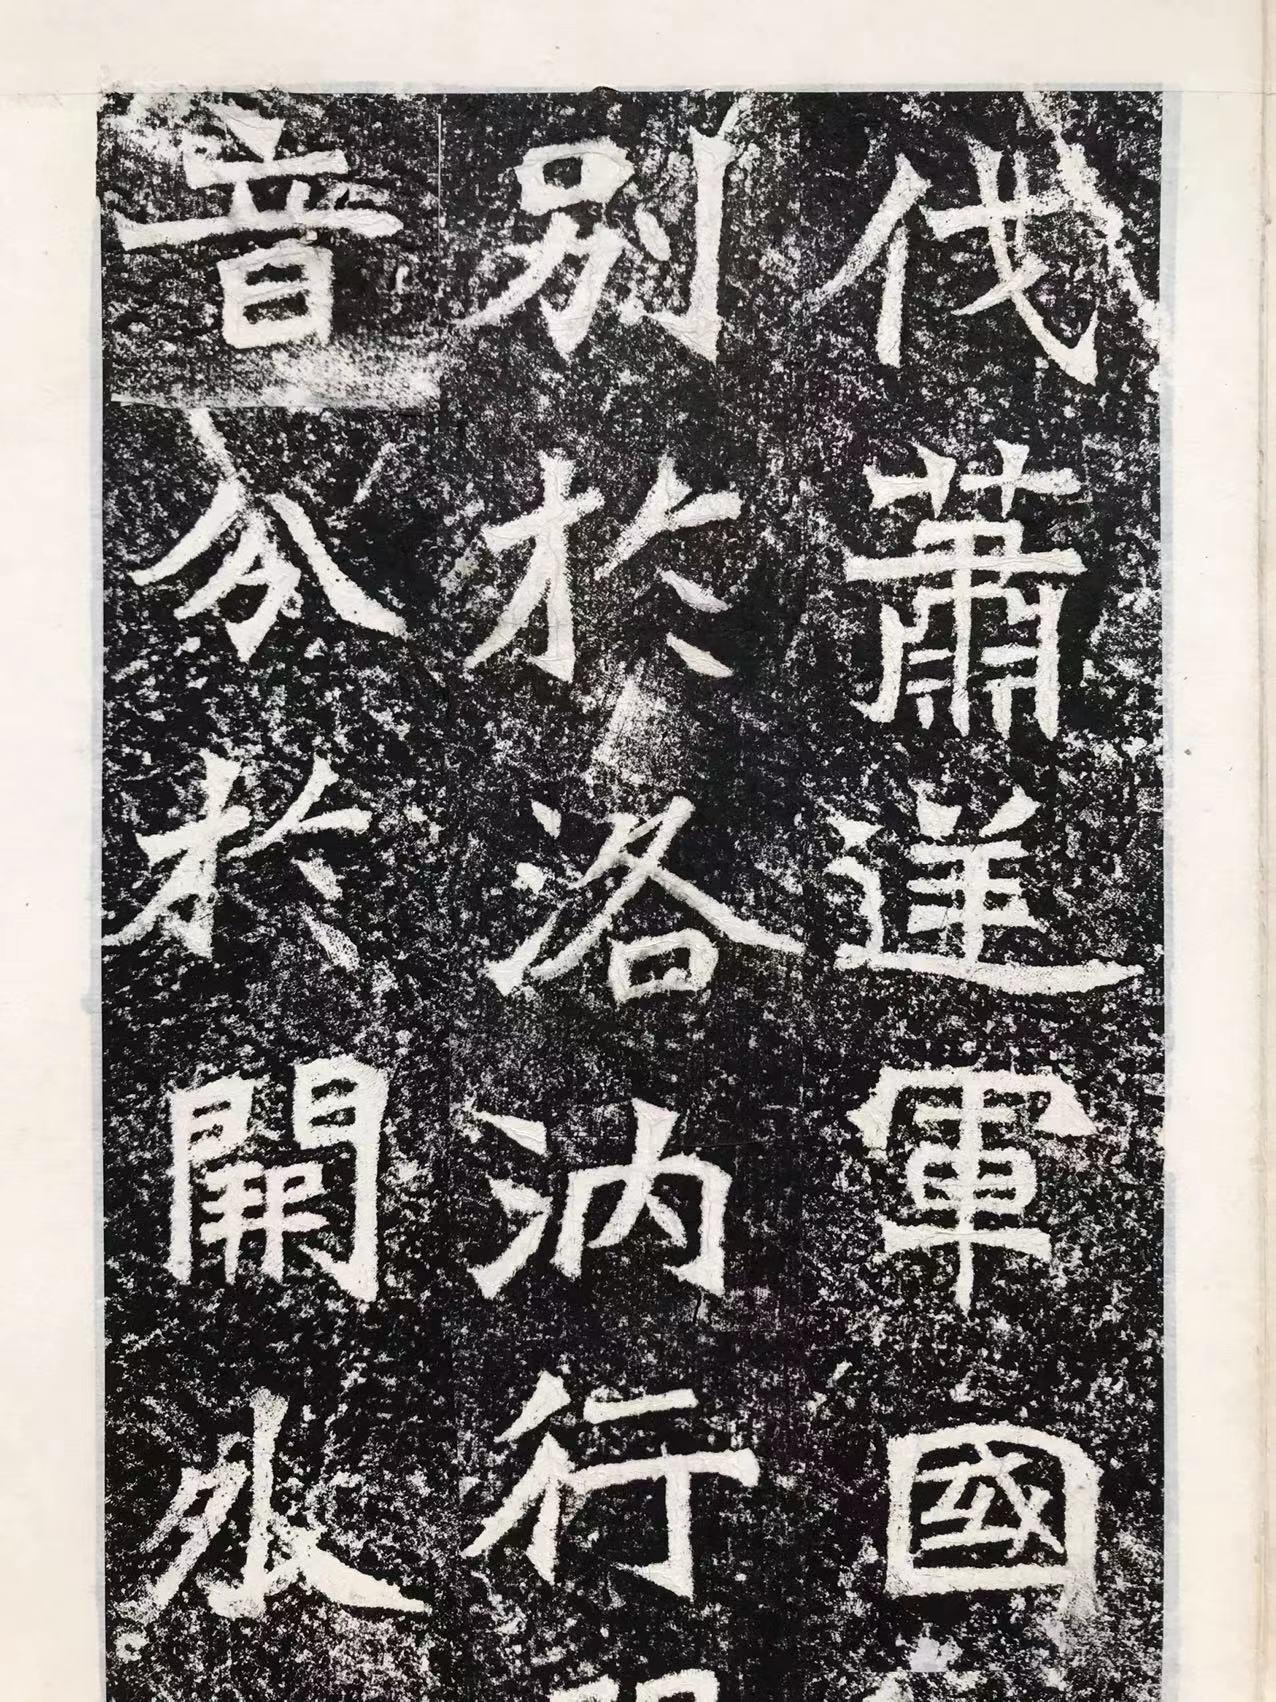 伐蕭逆軍國
別於洛汭行
音分於關外